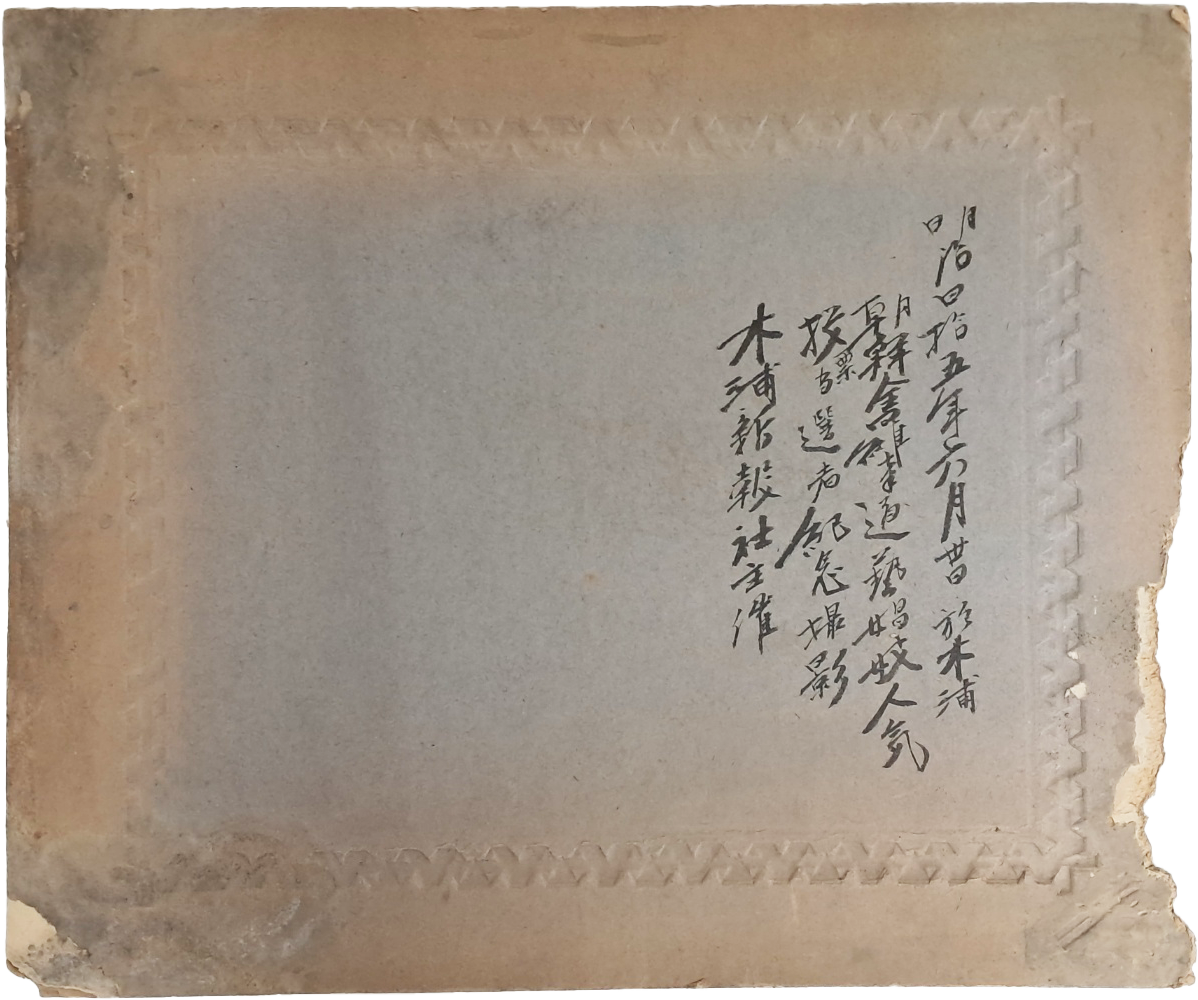 明治四拾五年六月卅日 於木浦
朝鮮全羅南道藝娼妓人気
投票当選者紀念撮影
木浦新報社主催